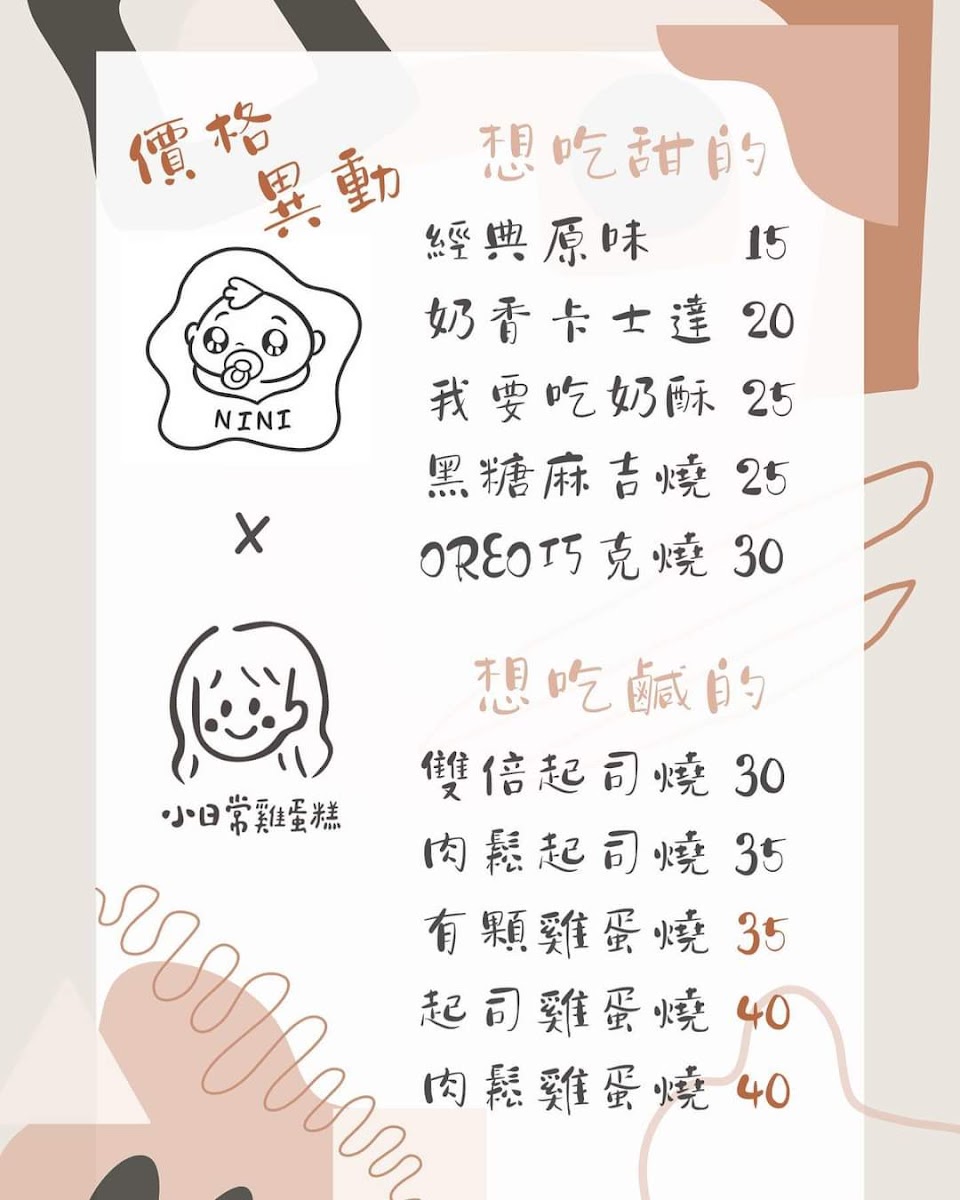 價格
異動
NINI
X
小日常雞蛋糕
想吃甜的
經典原味 15
奶香卡士達 20
我要吃奶酥 25
黑糖麻吉燒 25
OREO巧克燒 30
想吃鹹的
雙倍起司燒 30
肉鬆起司燒 35
有顆雞蛋燒 35
起司雞蛋燒 40
肉鬆雞蛋燒 40